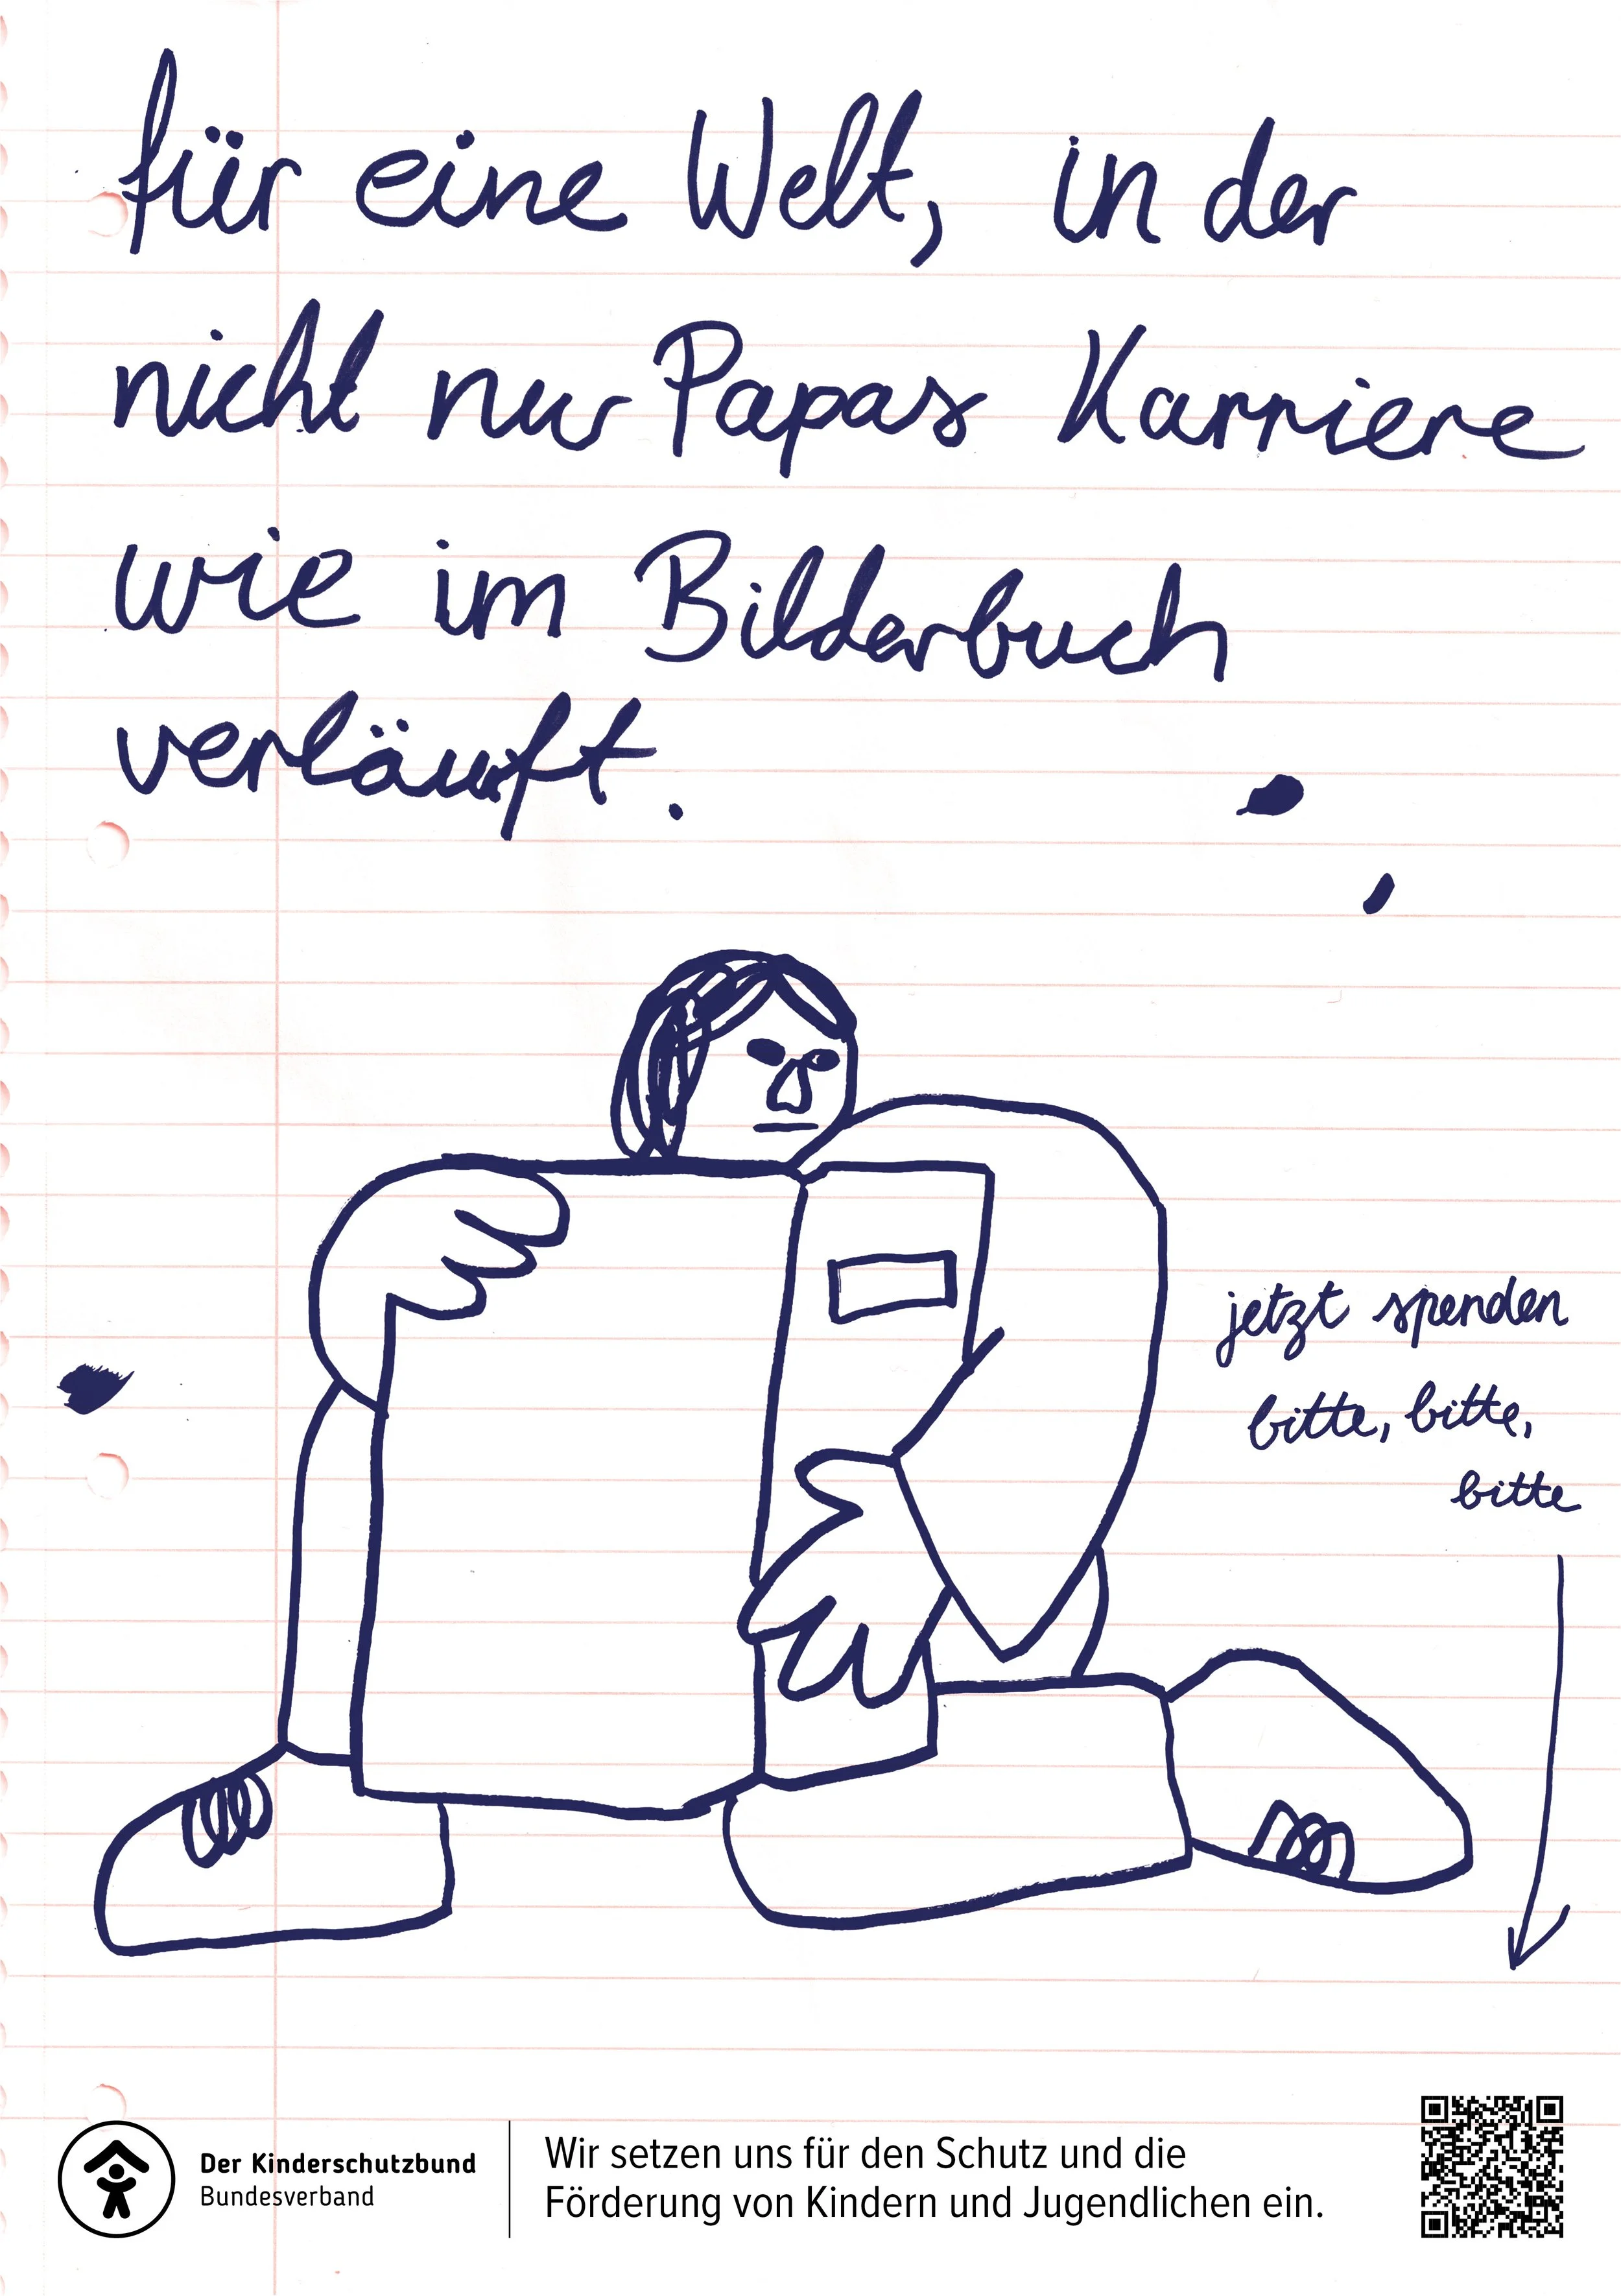 für eine Welt, in der
nicht nur Papas Karriere
wie im Bilderbuch
verläuft.
jetzt spenden
bitte, bitte,
bitte
Der Kinderschutzbund
Bundesverband
Wir setzen uns für den Schutz und die
Förderung von Kindern und Jugendlichen ein.